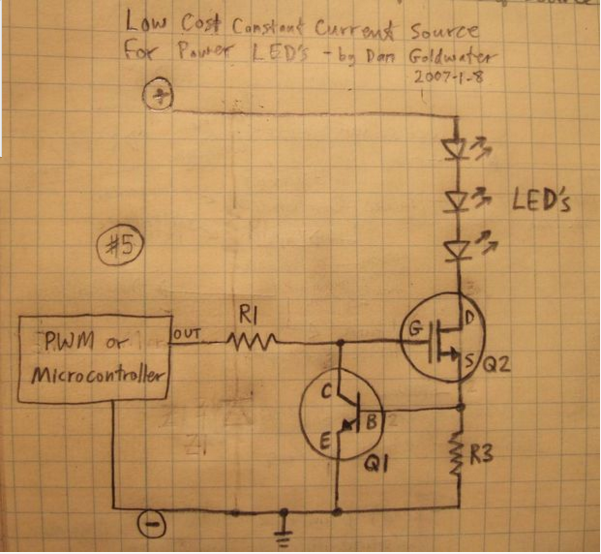 Low Cost Constant Current Source
For Power LED's - by Dan Goldwater
2007-1-8
+
LED's
#5
R1
PWM or
Microcontroller
OUT
G
D
S
Q2
C
B
E
Q1
R3
-